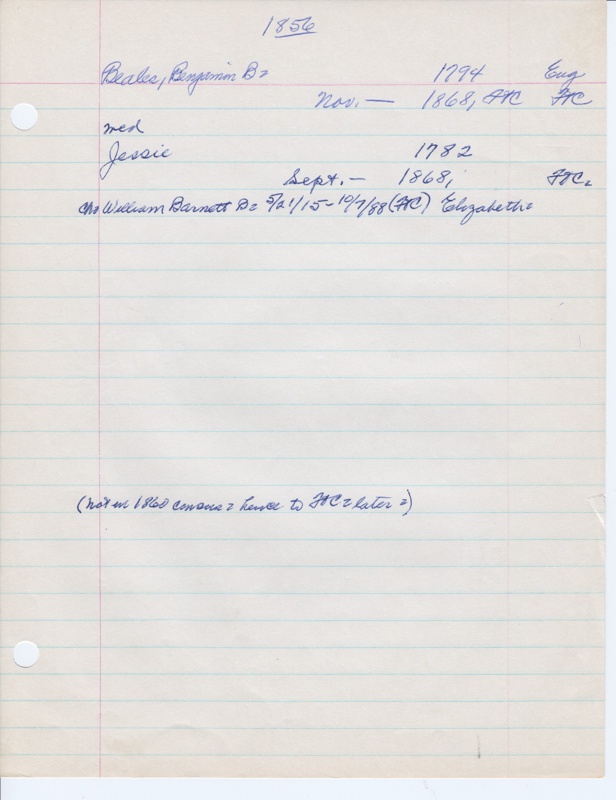 1856
Beales, Benjamin B= 1794 Eng
Nov. — 1868, FTC FTC
med
Jessie 1782
Sept. — 1868, FTC=
chs William Barnett B= 5/21/15 - 10/7/88 (FTC) Elizabeth=
(not in 1860 census = hence to FTC = later =)